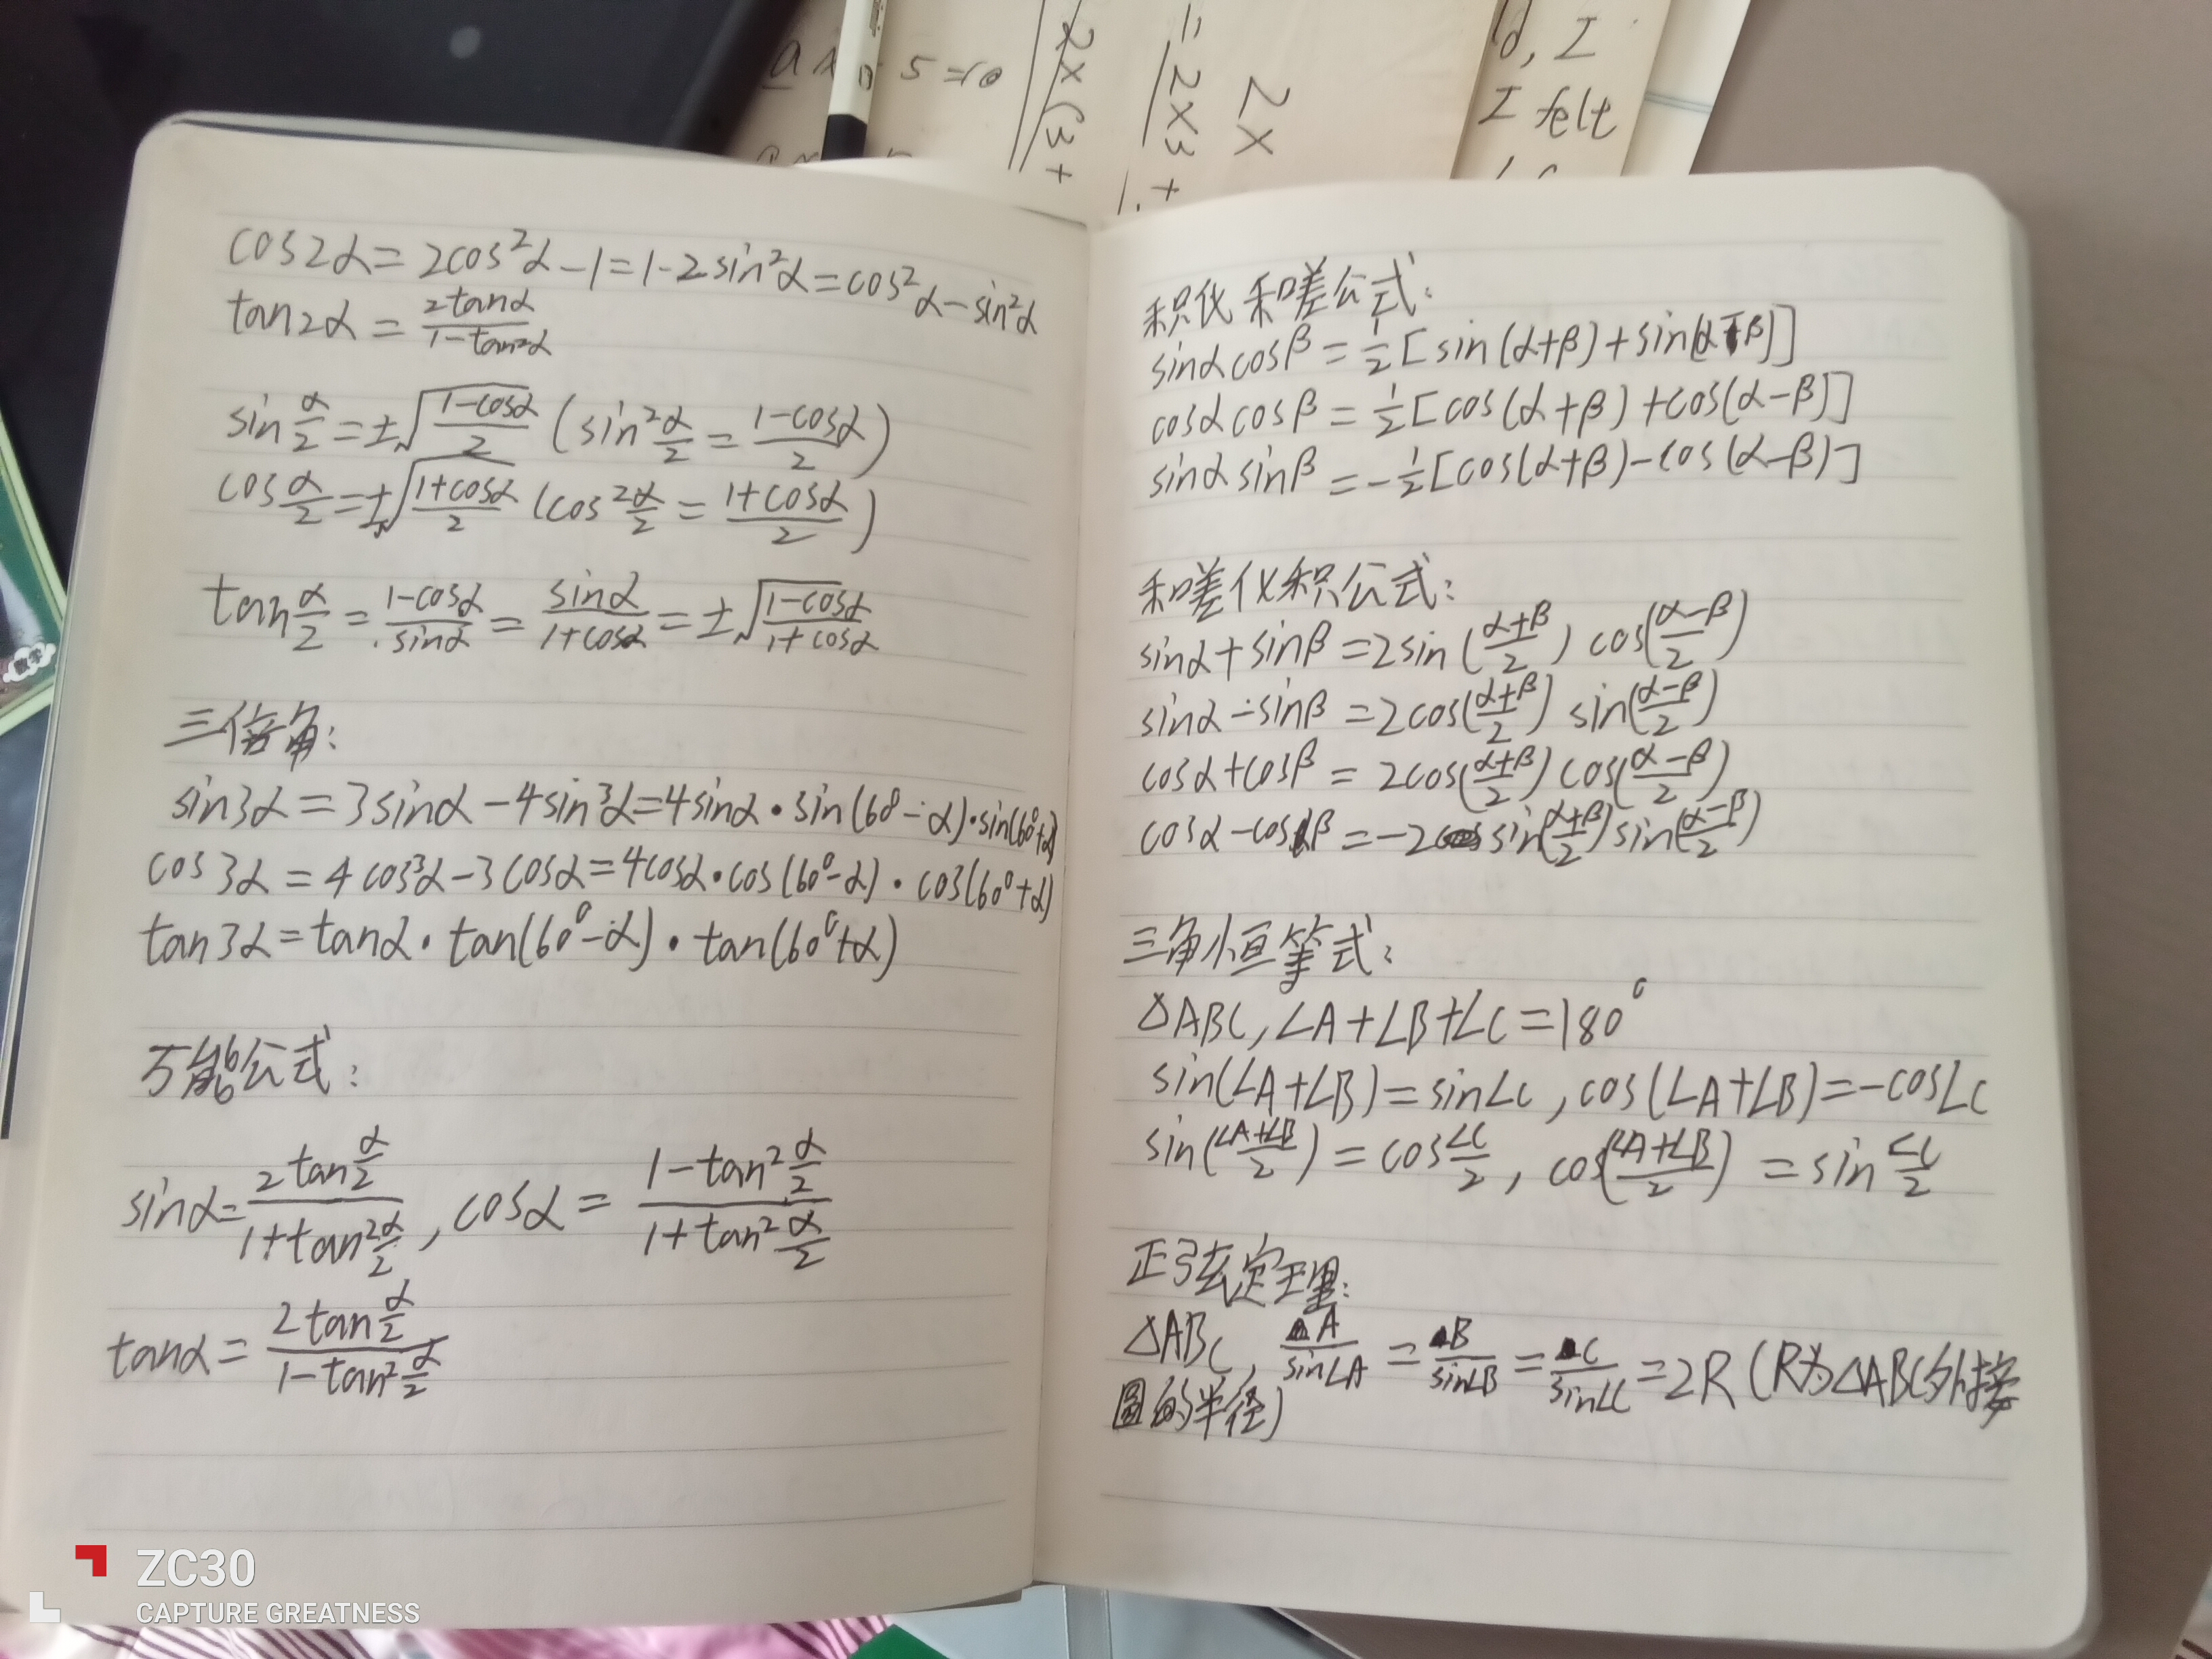 ax 5=10
2x(3+
=2x3+
2x
ld, I
I felt
cos2α=2cos²α-1=1-2sin²α=cos²α-sin²α
tan2α=2tanα/(1-tan²α)
sin α/2=±√((1-cosα)/2) (sin² α/2=(1-cosα)/2)
cos α/2=±√((1+cosα)/2) (cos² α/2=(1+cosα)/2)
tan α/2=(1-cosα)/sinα=sinα/(1+cosα)=±√((1-cosα)/(1+cosα))
三倍角:
sin3α=3sinα-4sin³α=4sinα·sin(60°-α)·sin(60°+α)
cos3α=4cos³α-3cosα=4cosα·cos(60°-α)·cos(60°+α)
tan3α=tanα·tan(60°-α)·tan(60°+α)
万能公式:
sinα=2tan α/2/(1+tan² α/2), cosα=(1-tan² α/2)/(1+tan² α/2)
tanα=2tan α/2/(1-tan² α/2)
积化和嗟公式:
sinαcosβ=1/2[sin(α+β)+sin(α-β)]
cosαcosβ=1/2[cos(α+β)+cos(α-β)]
sinαsinβ=-1/2[cos(α+β)-cos(α-β)]
和嗟化积公式:
sinα+sinβ=2sin((α+β)/2)cos((α-β)/2)
sinα-sinβ=2cos((α+β)/2)sin((α-β)/2)
cosα+cosβ=2cos((α+β)/2)cos((α-β)/2)
cosα-cosβ=-2sin((α+β)/2)sin((α-β)/2)
三角恒等式:
△ABC,∠A+∠B+∠C=180°
sin(∠A+∠B)=sin∠C,cos(∠A+∠B)=-cos∠C
sin((∠A+∠B)/2)=cos ∠C/2, cos((∠A+∠B)/2)=sin ∠C/2
正弦定理:
△ABC, A/sin∠A=B/sin∠B=C/sin∠C=2R(R为△ABC外接
圆的半径)
数学
ZC30
CAPTURE GREATNESS